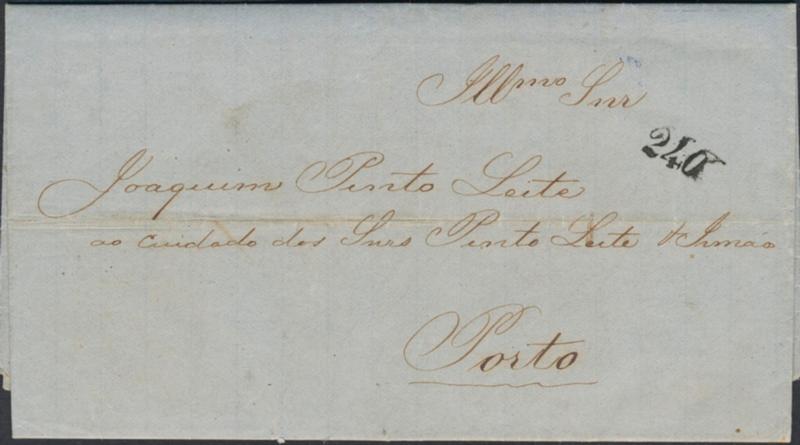 Illmo Snr
240
Joaquim Pinto Leite
ao cuidado dos Snrs Pinto Leite & Irmão
Porto